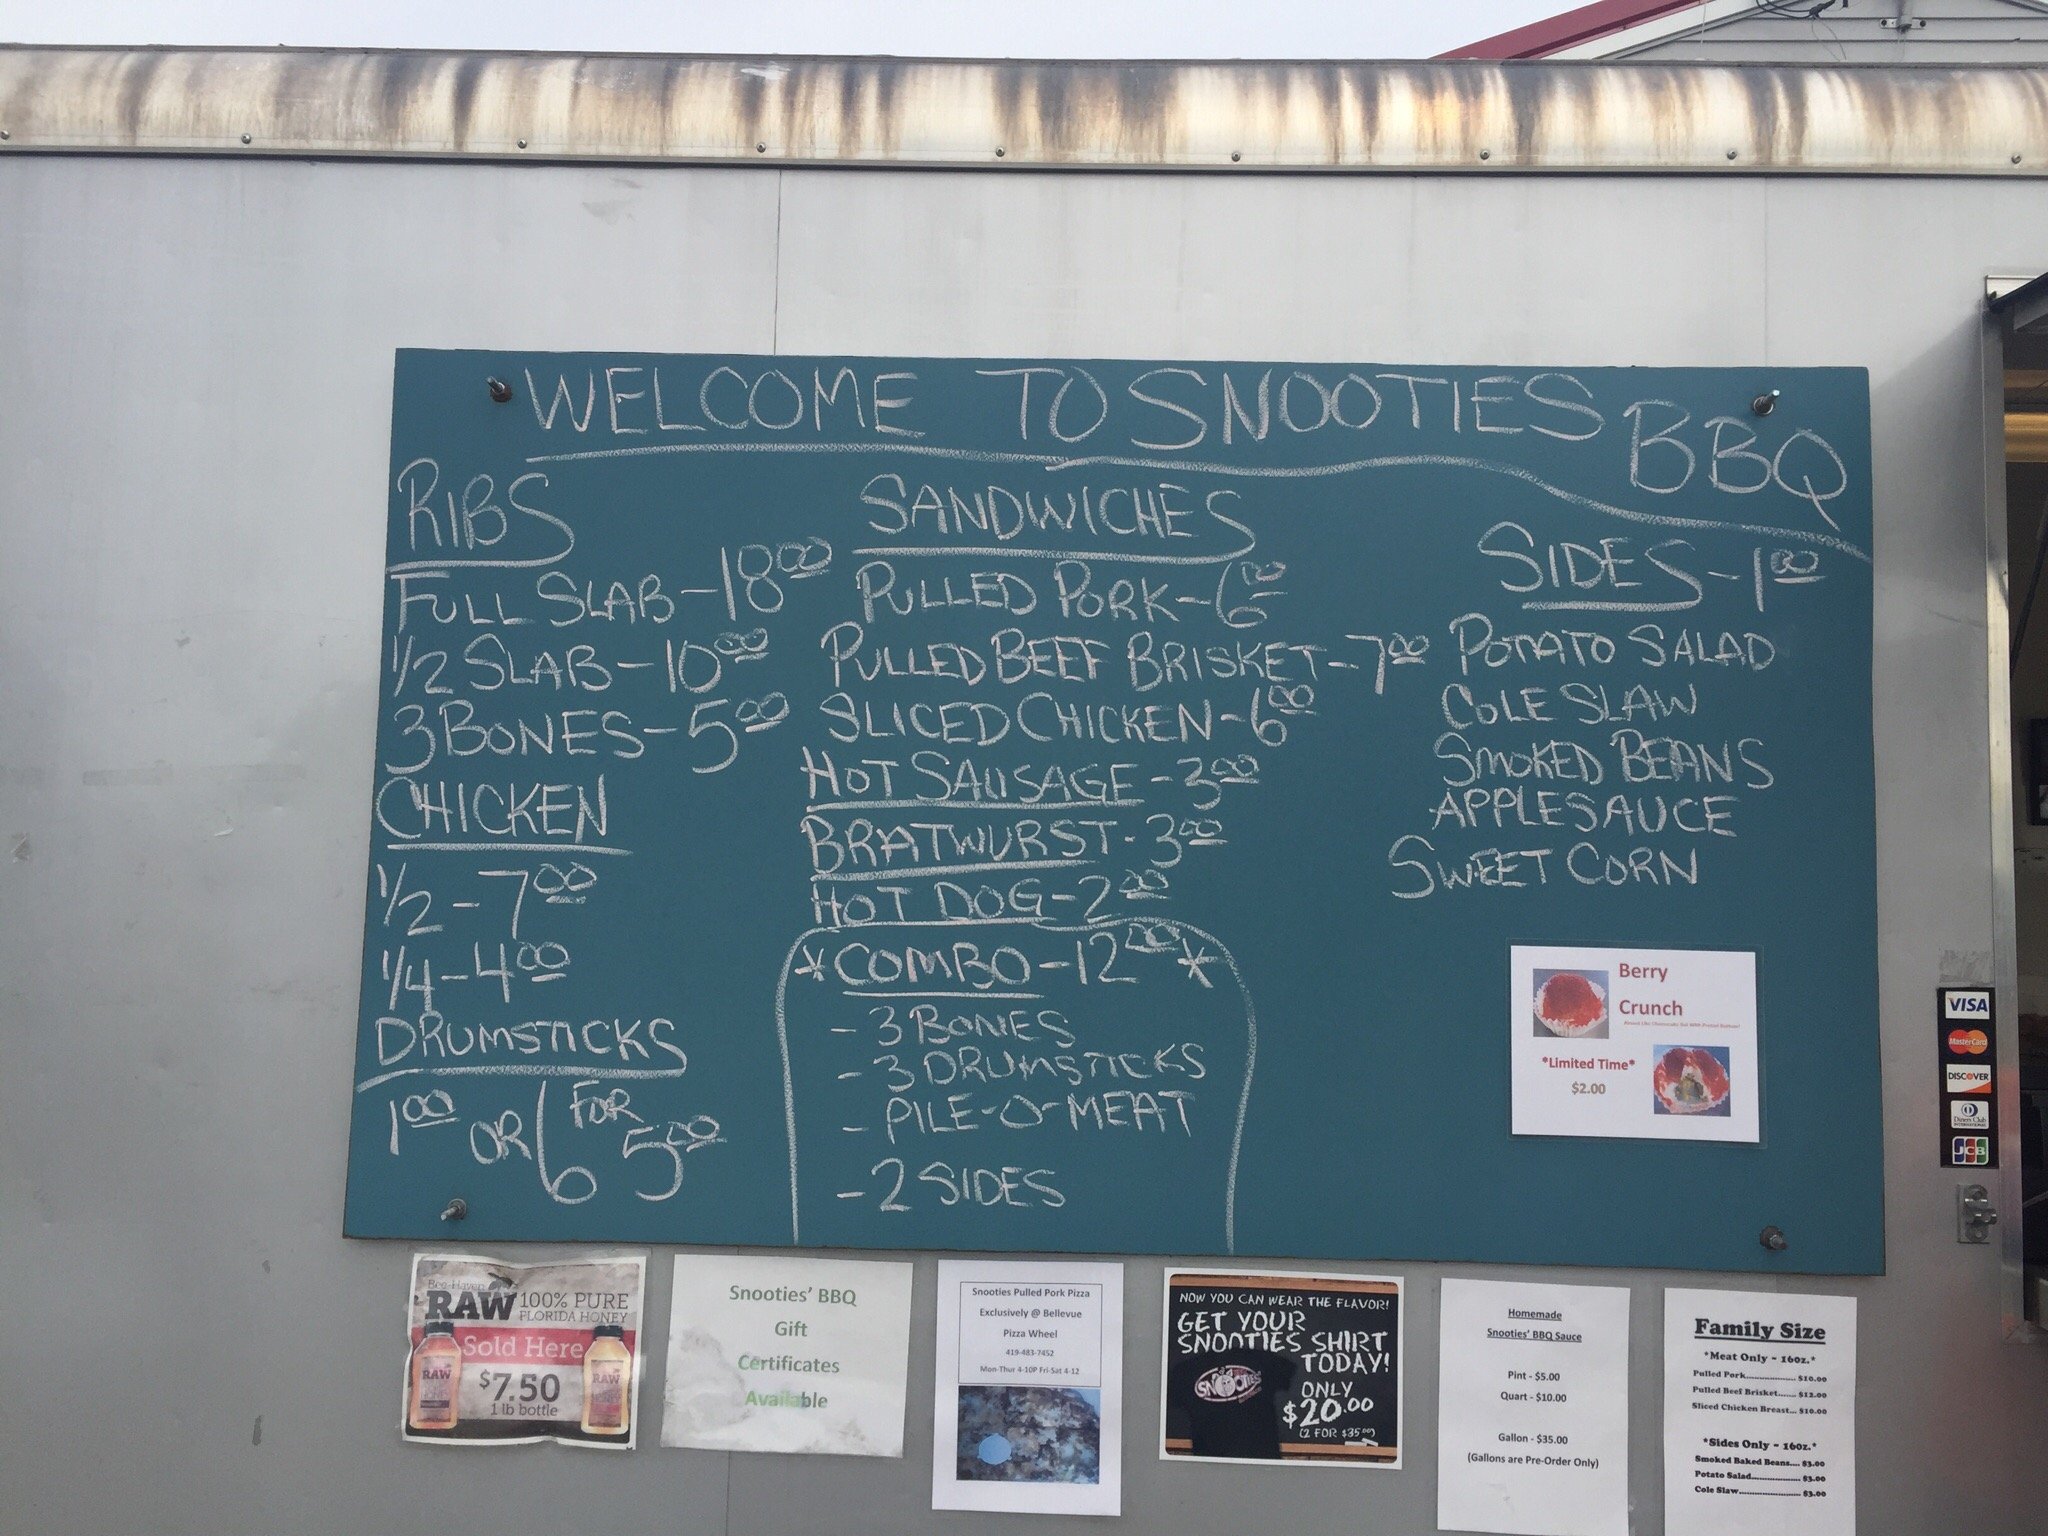 WELCOME TO SNOOTIES BBQ
RIBS
FULL SLAB - 18.00
1/2 SLAB - 10.00
3 BONES - 5.00
CHICKEN
1/2 - 7.00
1/4 - 4.00
DRUMSTICKS
1.00 OR 6 FOR 5.00
SANDWICHES
PULLED PORK - 6.00
PULLED BEEF BRISKET - 7.00
SLICED CHICKEN - 6.00
HOT SAUSAGE - 3.00
BRATWURST - 3.00
HOT DOG - 2.00
*COMBO - 12.00*
- 3 BONES
- 3 DRUMSTICKS
- PILE-O-MEAT
- 2 SIDES
SIDES - 1.00
POTATO SALAD
COLE SLAW
SMOKED BEANS
APPLESAUCE
SWEET CORN
Berry
Crunch
*Limited Time*
$2.00
VISA
MasterCard
DISCOVER
Diners Club
INTERNATIONAL
JCB
Bee-Haven
RAW 100% PURE
FLORIDA HONEY
Sold Here
RAW
RAW
$7.50
1 lb bottle
Snooties' BBQ
Gift
Certificates
Available
Snooties Pulled Pork Pizza
Exclusively @ Bellevue
Pizza Wheel
419-483-7452
Mon-Thur 4-10P Fri-Sat 4-12
NOW YOU CAN WEAR THE FLAVOR!
GET YOUR
SNOOTIES SHIRT
TODAY!
SNOOTIES
ONLY
$20.00
(2 FOR $35.00)
Homemade
Snooties' BBQ Sauce
Pint - $5.00
Quart - $10.00
Gallon - $35.00
(Gallons are Pre-Order Only)
Family Size
*Meat Only ~ 16oz.*
Pulled Pork.................. $10.00
Pulled Beef Brisket....... $12.00
Sliced Chicken Breast... $10.00
*Sides Only ~ 16oz.*
Smoked Baked Beans.... $3.00
Potato Salad.................. $3.00
Cole Slaw....................... $3.00